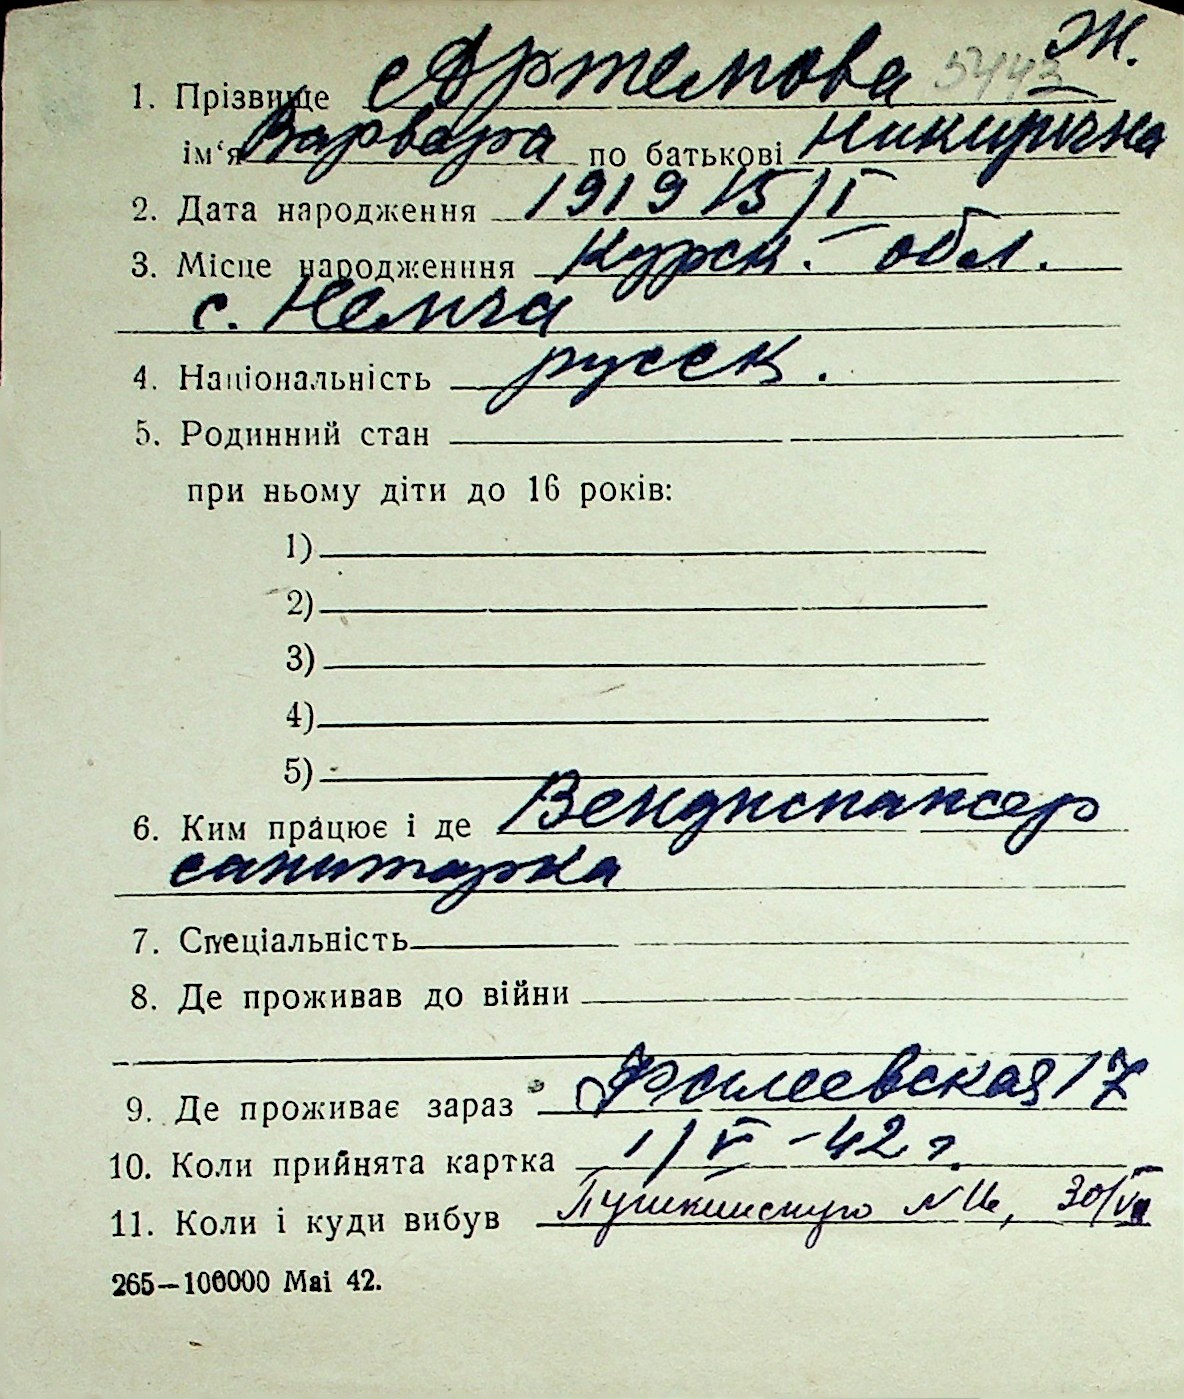 Ж.
1. Прізвище Артемова 5443
ім‘я Варвара по батькові Никирична
2. Дата народження 1919 15/I
3. Місце народженння Курск. обл.
с. Немча
4. Національність русск.
5. Родинний стан
при ньому діти до 16 років:
1)
2)
3)
4)
5)
6. Ким працює і де Вендиспансер
санитарка
7. Спеціальність
8. Де проживав до війни
9. Де проживає зараз Филеевская 17
10. Коли прийнята картка 1/V - 42 г.
11. Коли і куди вибув Пушкинскую N 11а, 30/VII
265—100000 Маі 42.